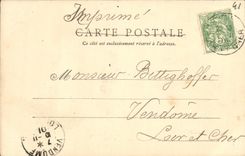 Imprimé
41
CARTE POSTALE
Ce côté est exclusivement réservé à l'adresse.
Monsieur Bettighoffer
Vendôme
Loir et Cher
VENDOME
7
01